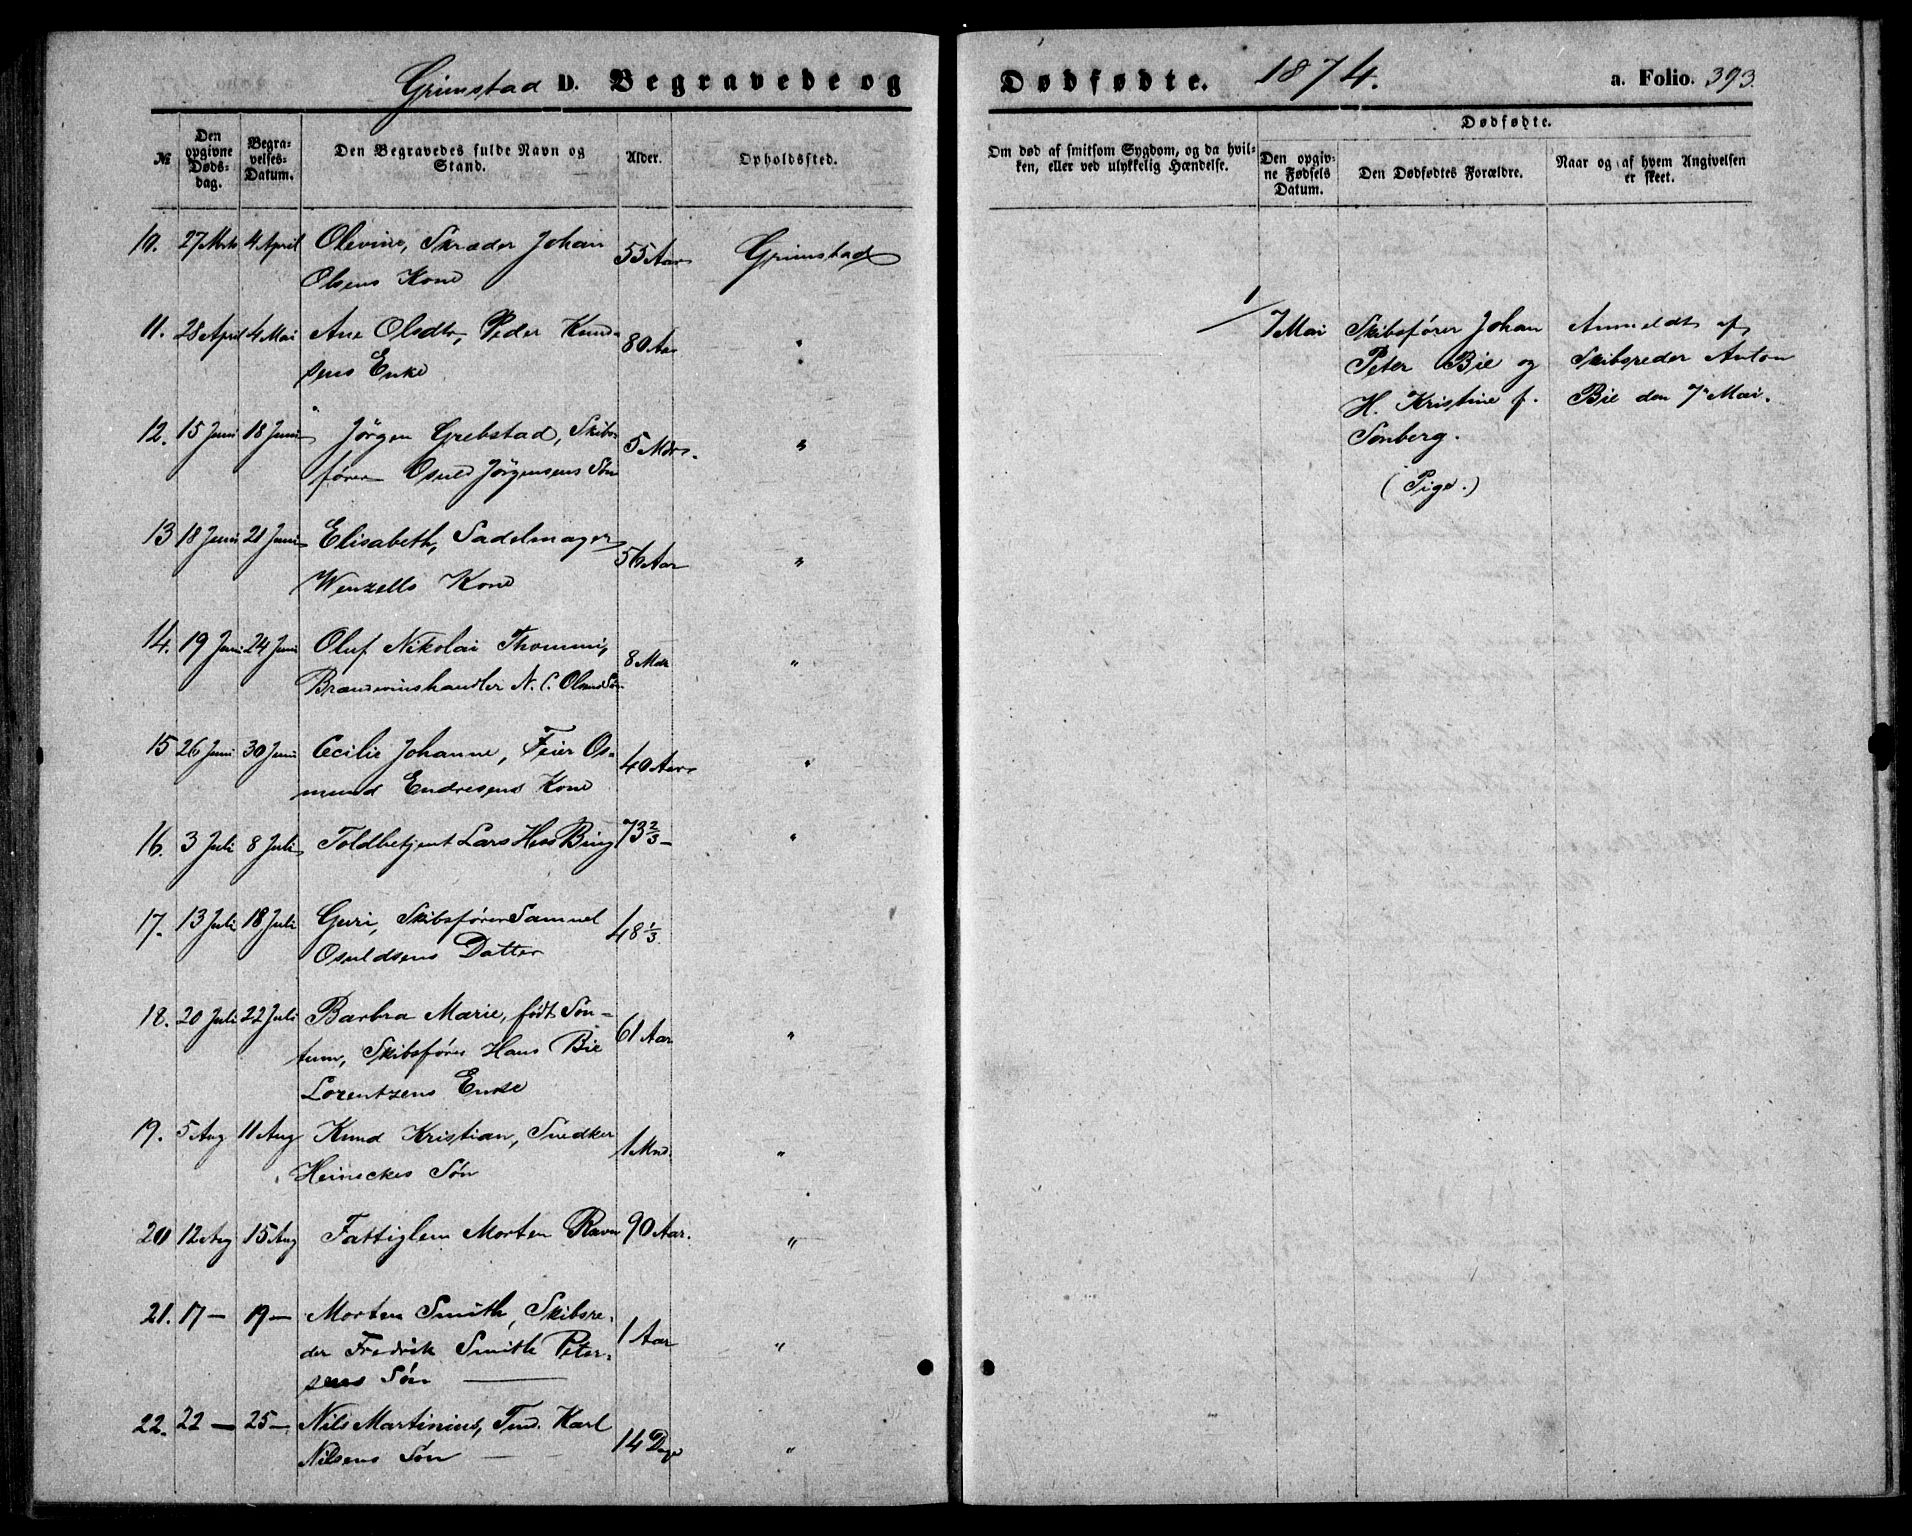 Grimstad D. Begravede og
№
Den opgivne Dødsdag.
Begravelses-Datum.
Den Begravedes fulde Navn og Stand.
Alder.
Opholdssted.
10. 27 Marts 4 April Olevine, Skræder Johan 55 Aar Grimstad
Olsens Kone
11. 28 April 4 Mai Ane Olsdtr, Peder Knud- 80 Aar "
sens Enke
12. 15 Juni 18 Juni Jörgen Grebstad, Skibs- 5 Mdr. "
fører Osuld Jörgensens Søn
13 18 Juni 21 Juni Elisabeth, Sadelmager 56 Aar "
Wenzells Kone
14. 19 Juni 24 Juni Oluf Nikolai Thommi, 8 Mdr "
Brændevinshandler N. C. Olsens Søn
15 26 Juni 30 Juni Cecilie Johanne, Feier Os- 40 Aar "
mund Endresens Kone
16. 3 Juli 8 Juli Toldbetjent Lars Hess Bing 73 2/3 - "
17. 13 Juli 18 Juli Guri, Skibsfører Samuel 48 1/3.
Osuldsens Datter
18. 20 Juli 22 Juli Barbra Marie, født Søn- 61 Aar "
tum, Skibsfører Hans Bie
Lorentzens Enke
19. 5 Aug 11 Aug Knud Kristian, Snedker 1 Mnd. "
Heineckes Søn
20 12 Aug 15 Aug Fattiglem Morten Ravn 90 Aar. "
21. 17 — 19 — Morten Smith, Skibsre- 1 Aar "
der Fredrik Smith Peter-
sens Søn
22. 22 — 25 — Nils Martinius, Tmd. Karl 14 Dage "
Nilsens Søn
Dødfødte. 1874. a. Folio. 393.
Om død af smitsom Sygdom, og da hvil-
ken, eller ved ulykkelig Hændelse.
Dødfødte.
Den opgiv-
ne Fødsels
Datum.
Den Dødfødtes Forældre.
Naar og af hvem Angivelsen
er skeet.
1/ 7 Mai Skibsfører Johan Anmeldt af
Peter Bie og Skibsreder Anton
H. Kristine f. Bie den 7 Mai.
Sønberg.
(Pige.)